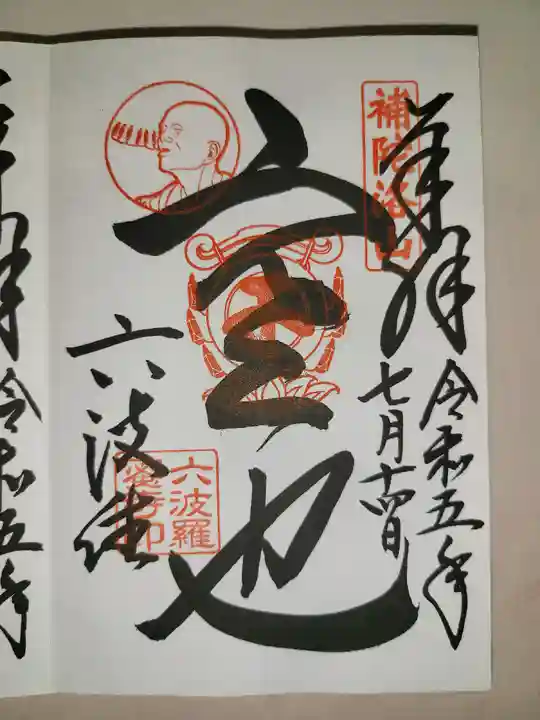 補陀洛山
奉拝
令和五年
七月十四日
空也
六波羅蜜寺印
六波
奉拝
令和五年